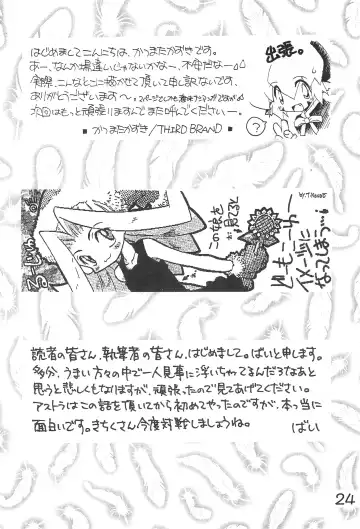 はじめましてこんにちは、かつまたかずきです。
あー、なんか場違いじゃないかなー、不安だなー
実際、こんなとこに描かせて頂いて申し訳ないです。
ありがとうございます〜。
次回はもっと頑張りますんでまた呼んでください—。
■かつまたかずき/THIRD BRAND■
出張。
?
この娘を
見てると
どーもこーゆー
イメージに
なってしまう…!
読者の皆さん、執筆者の皆さん、はじめまして。ばいと申します。
多分、うまい方々の中で一人見事に浮いちゃってるんだろなあと
思うと悲しくもなりますが、頑張ったので見てあげてください。
アストラはこの話を頂いてから初めてやったのですが、本っ当に
面白いです。きちくさん今度対戦しましょうね。
ばい
24